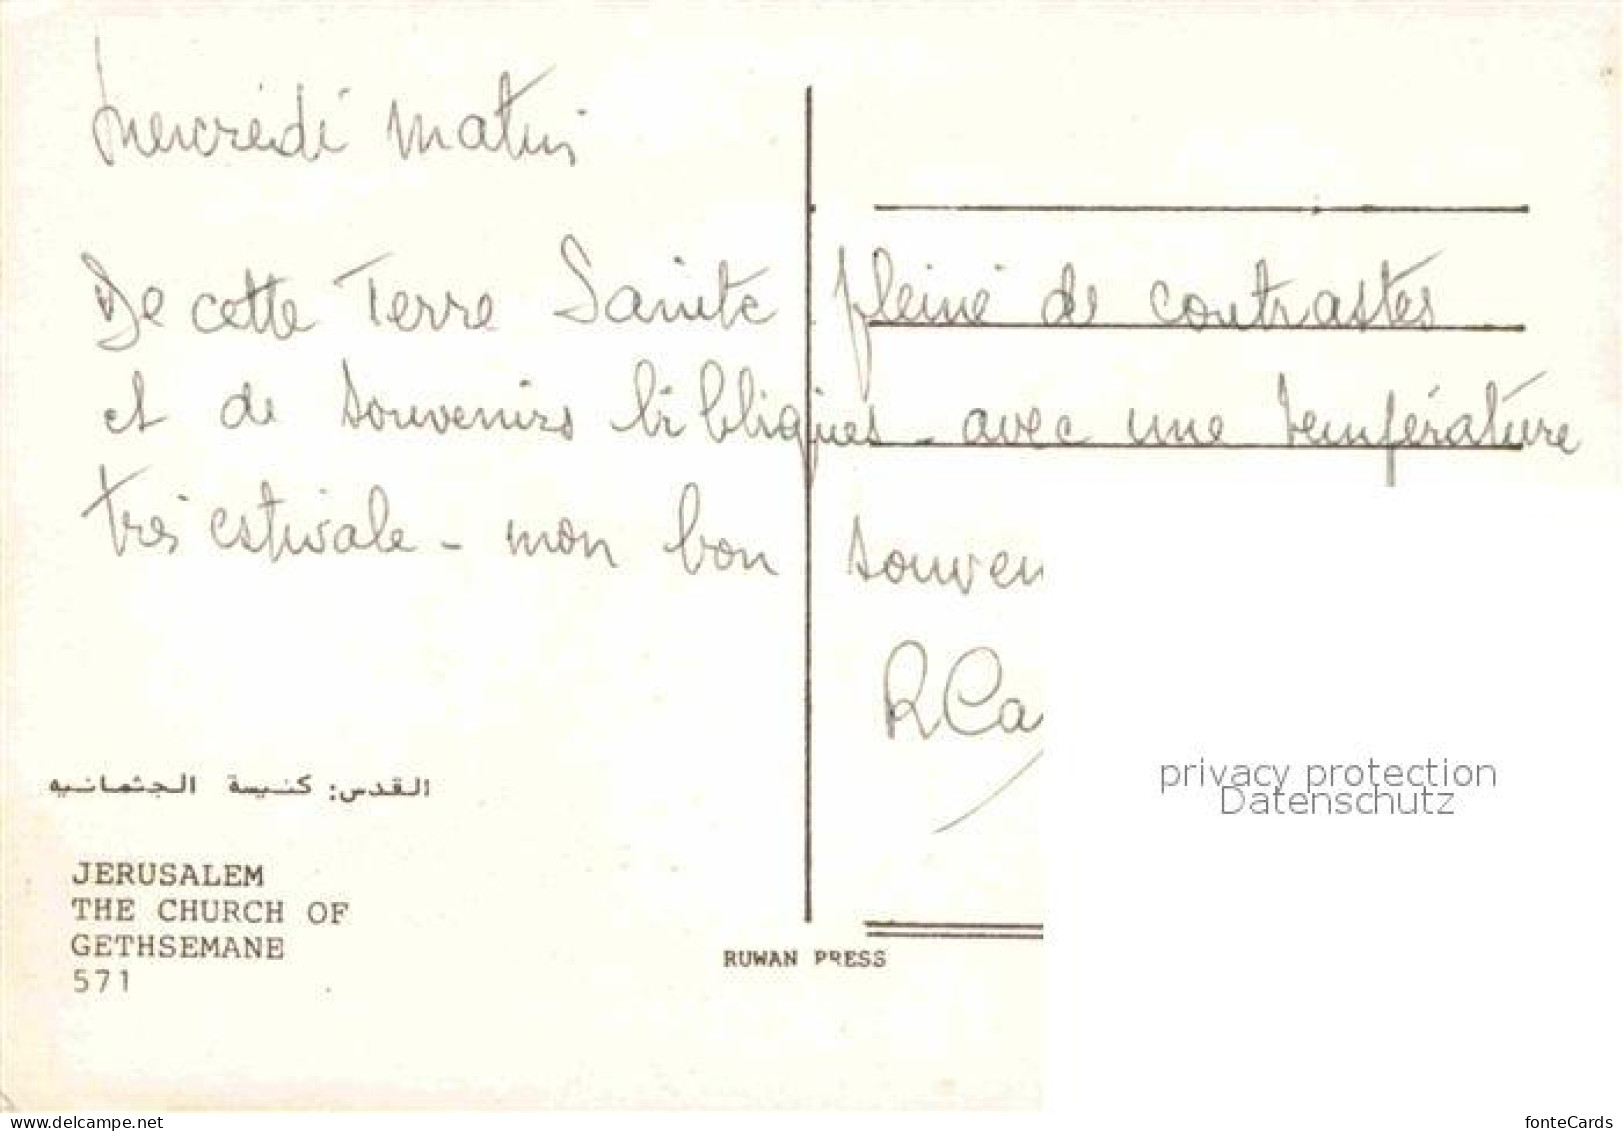 Mercredi matin
De cette Terre Sainte pleine de contrastes
et de souvenirs bibliques - avec une température
très estivale - mon bon souven
R Ca
القدس: كنيسة الجثمانيه
JERUSALEM
THE CHURCH OF
GETHSEMANE
571
RUWAN PRESS
privacy protection
Datenschutz
www.delcampe.net
fonteCards